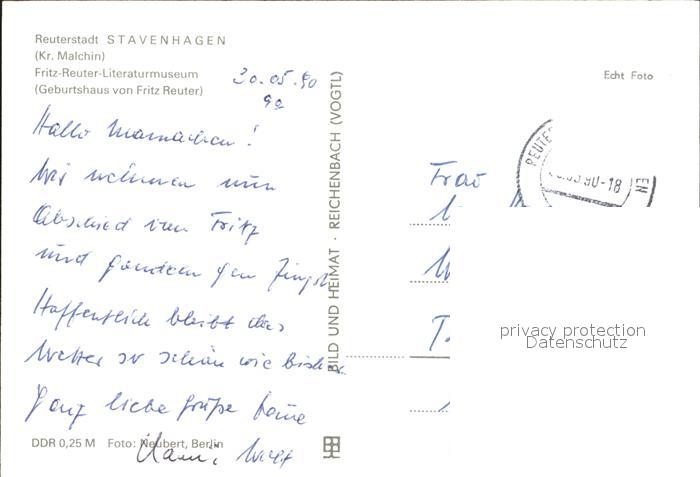 Reuterstadt STAVENHAGEN
(Kr. Malchin)
Fritz-Reuter-Literaturmuseum
(Geburtshaus von Fritz Reuter)
Echt Foto
30.05.90
90
Hallo Mamachen!
Wir nehmen nun
Abschied von Fritz
und gondeln gen Zingst
Hoffentlich bleibt das
Wetter so schön wie bisher.
Ganz liebe Grüße
BILD UND HEIMAT · REICHENBACH (VOGTL)
DDR 0,25 M Foto: Neubert, Berlin
Frau
REUTE
90-18
EN
privacy protection
Datenschutz